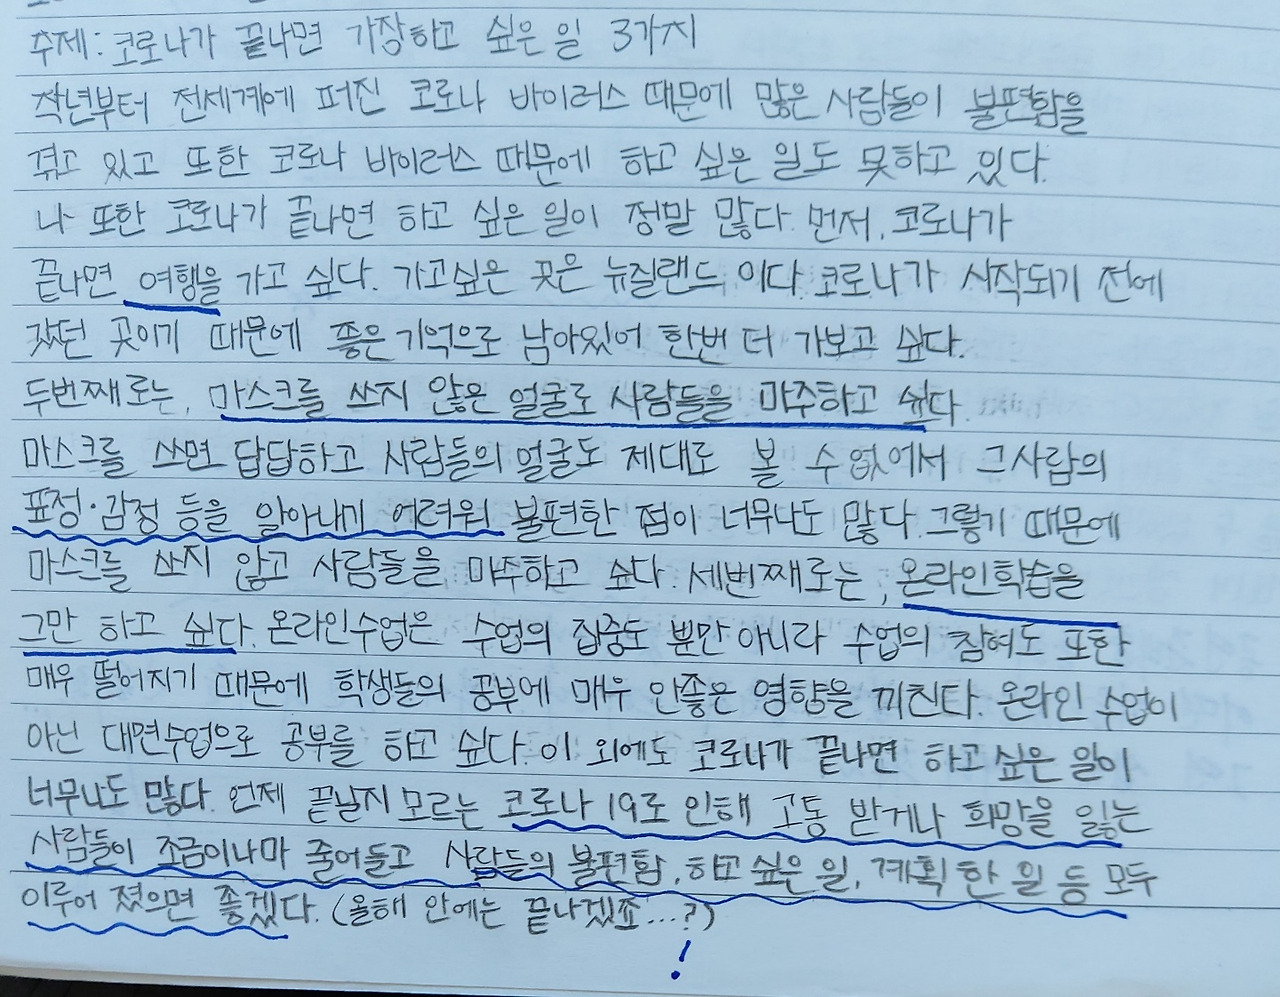 주제: 코로나가 끝나면 가장하고 싶은 일 3가지
작년부터 전세계에 퍼진 코로나 바이러스 때문에 많은 사람들이 불편함을
겪고 있고 또한 코로나 바이러스 때문에 하고 싶은 일도 못하고 있다.
나 또한 코로나가 끝나면 하고 싶은 일이 정말 많다. 먼저, 코로나가
끝나면 여행을 가고 싶다. 가고싶은 곳은 뉴질랜드 이다. 코로나가 시작되기 전에
갔던 곳이기 때문에 좋은 기억으로 남아있어 한번 더 가보고 싶다.
두번째로는, 마스크를 쓰지 않은 얼굴로 사람들을 마주하고 싶다.
마스크를 쓰면 답답하고 사람들의 얼굴도 제대로 볼 수 없어서 그사람의
표정·감정 등을 알아내기 어려워 불편한 점이 너무나도 많다. 그렇기 때문에
마스크를 쓰지 않고 사람들을 마주하고 싶다. 세번째로는, 온라인학습을
그만 하고 싶다. 온라인수업은 수업의 집중도 뿐만 아니라 수업의 참여도 또한
매우 떨어지기 때문에 학생들의 공부에 매우 안좋은 영향을 끼친다. 온라인 수업이
아닌 대면수업으로 공부를 하고 싶다. 이 외에도 코로나가 끝나면 하고 싶은 일이
너무나도 많다. 언제 끝날지 모르는 코로나 19로 인해 고통 받거나 희망을 잃는
사람들이 조금이나마 줄어들고 사람들의 불편함, 하고 싶은 일, 계획 한 일 등 모두
이루어 졌으면 좋겠다. (올해 안에는 끝나겠죠...?)
!